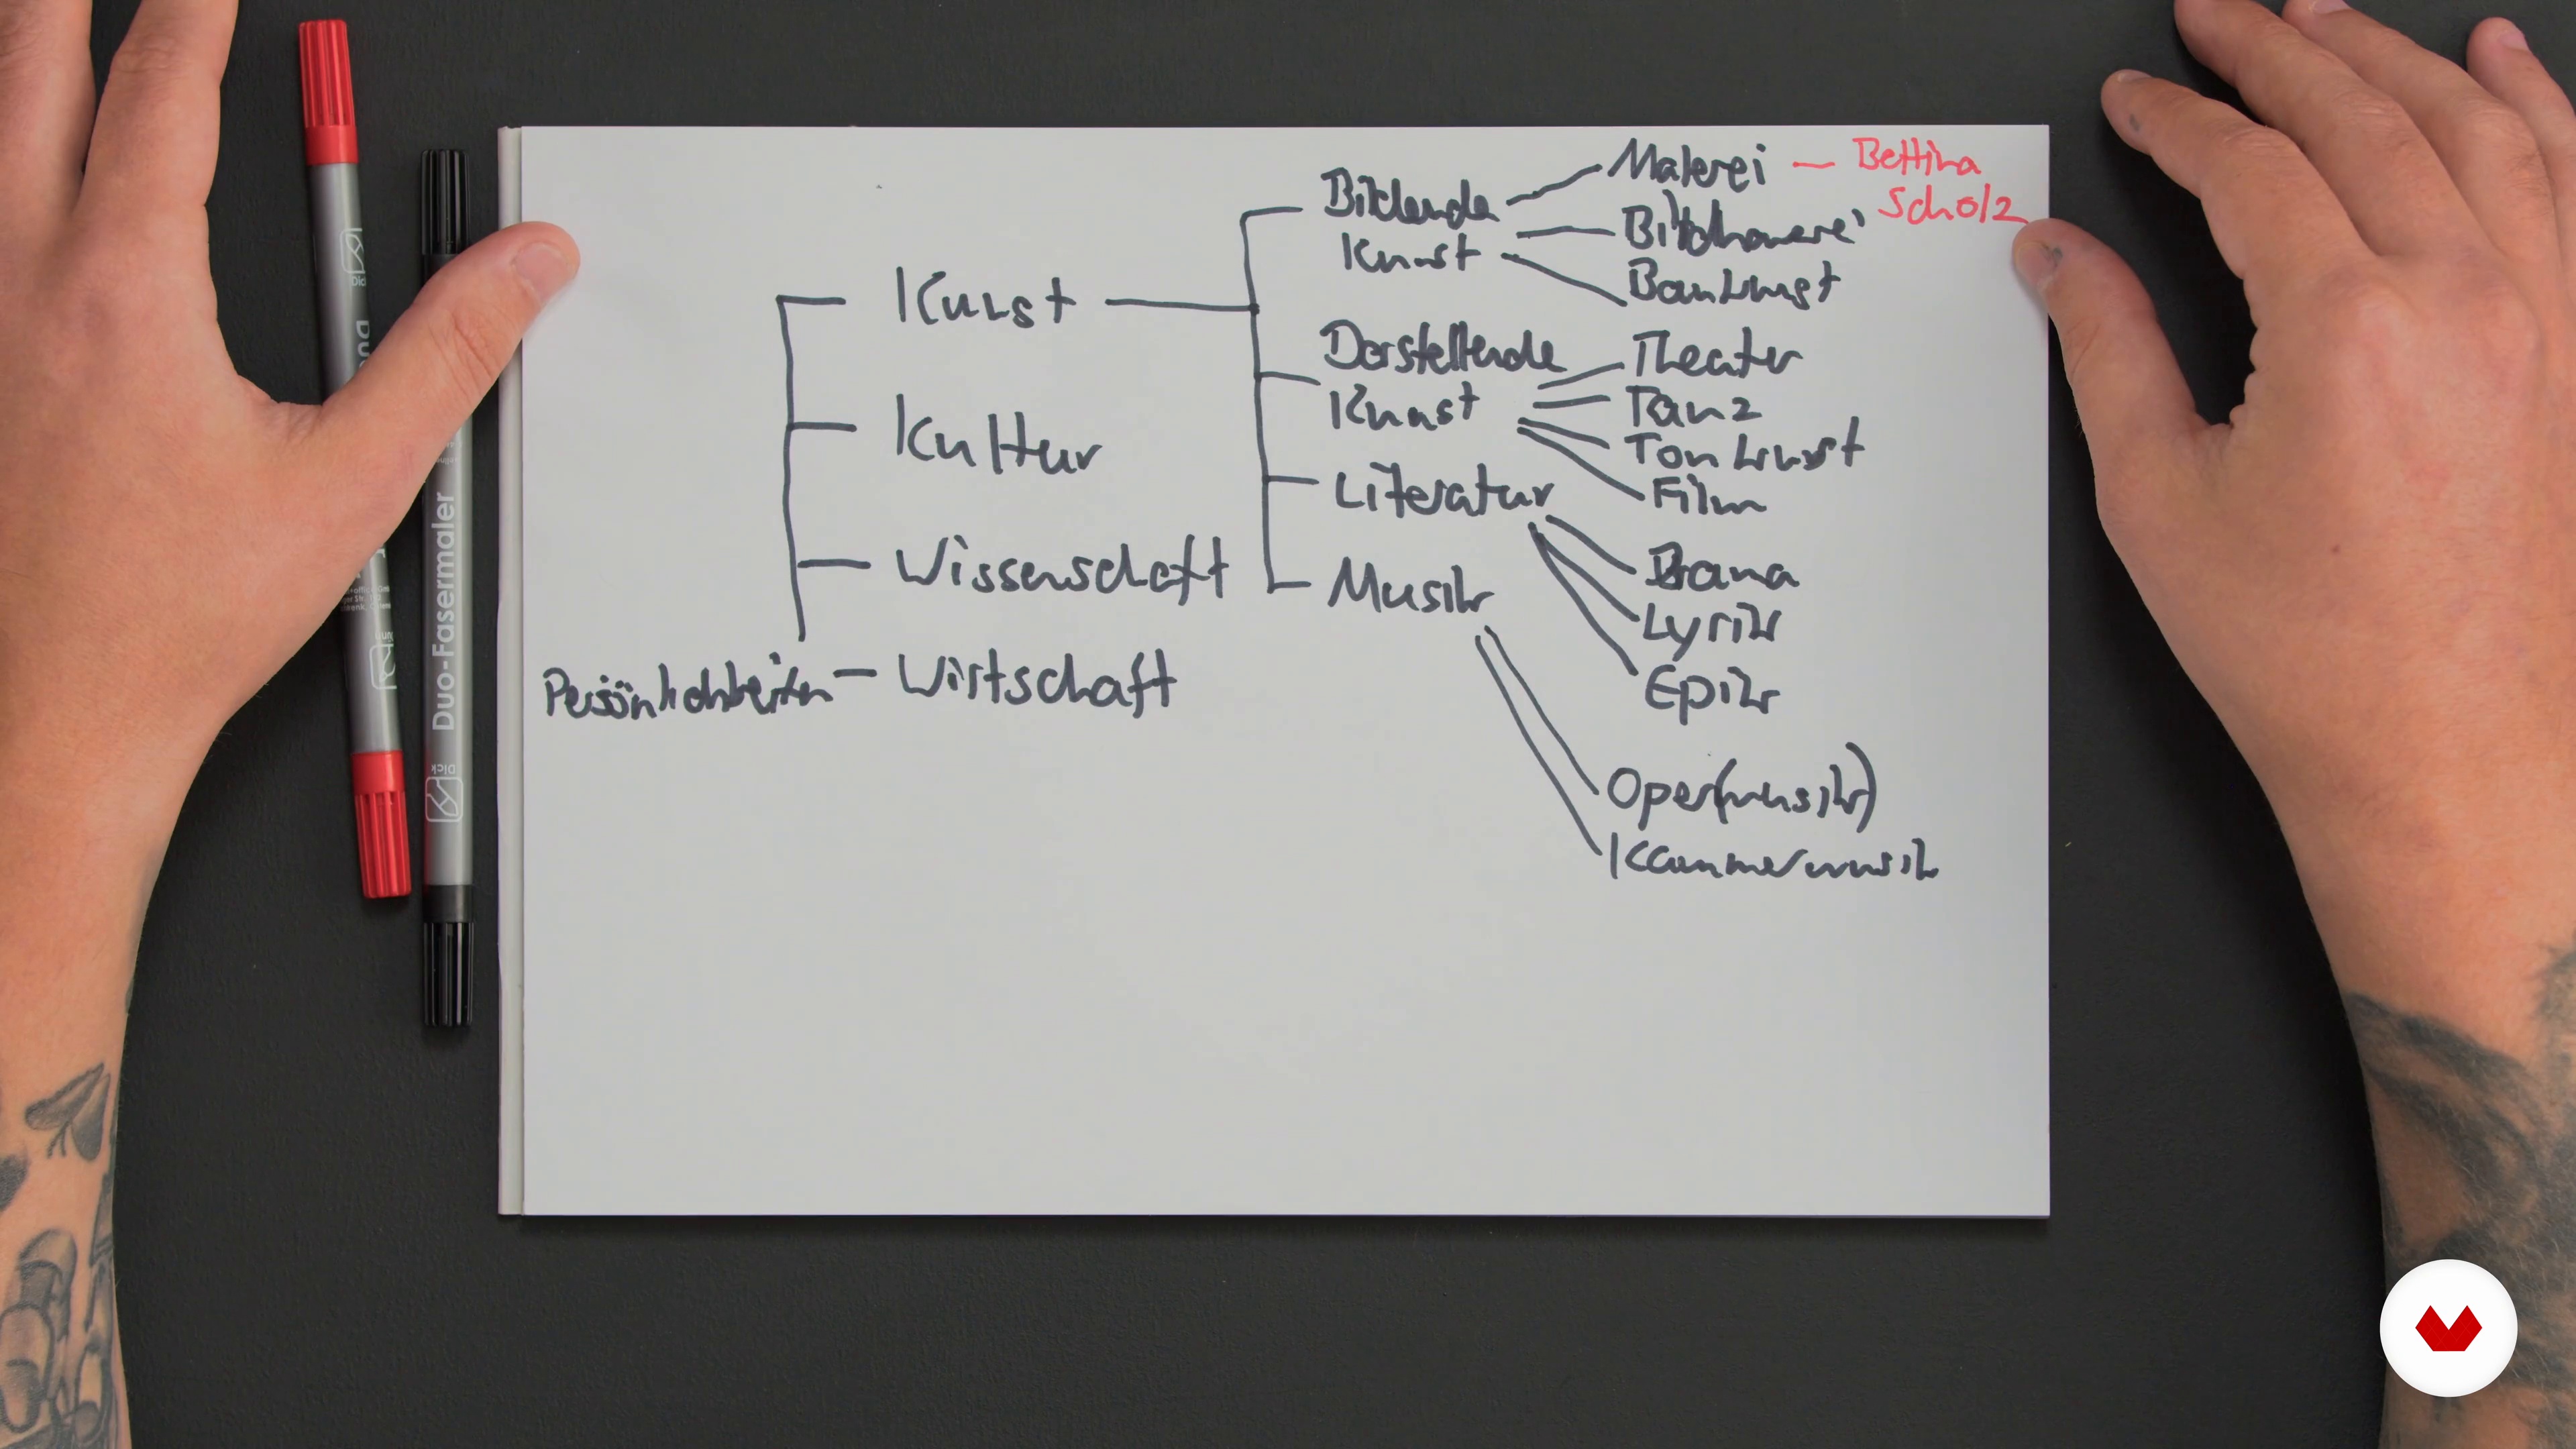 Malerei — Bettina
Scholz
Bildende
Kunst
Bildhauerei
Baukunst
Kunst
Darstellende
Kunst
Theater
Tanz
Tonkunst
Film
Kultur
Literatur
Drama
Lyrik
Epik
Wissenschaft
Musik
Oper(musik)
Kammermusik
Persönlichkeiten — Wirtschaft
Duo-Fasermaler